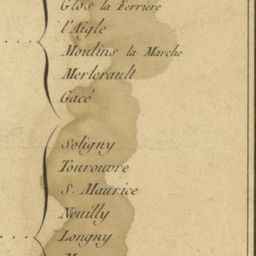 Glos la Ferriere
l'Aigle
Moulins la Marche
Merlerault
Gacé
Soligny
Tourouvre
S. Maurice
Neuilly
Longny